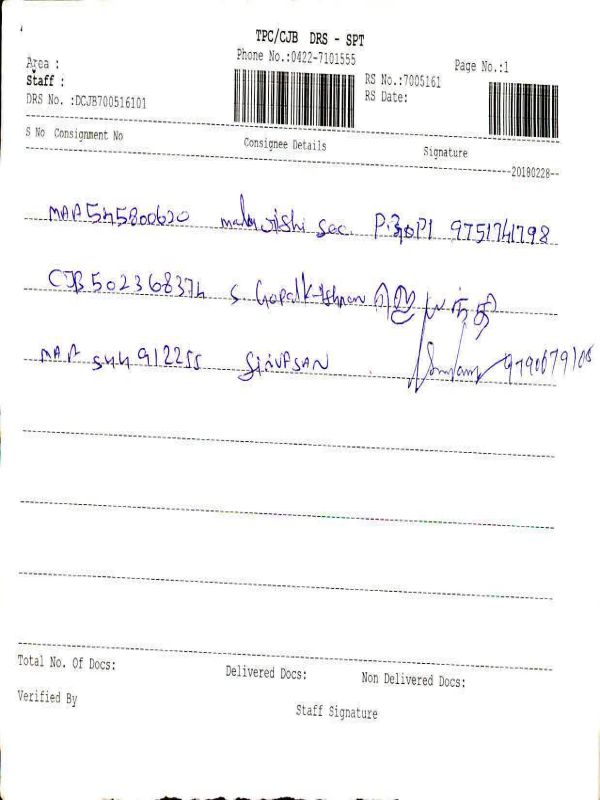 TPC/CJB DRS - SPT
Phone No.:0422-7101555
Page No.:1
Area :
Staff :
RS No.:7005161
DRS No. :DCJB700516101
RS Date:
S No Consignment No Consignee Details Signature
20180228
MAA545800620 9751741798
CJB502368374 S. Gopalkrishnan ஜெயந்தி
MAA 544912255 SINVASAN
Total No. Of Docs: Delivered Docs: Non Delivered Docs:
Verified By Staff Signature